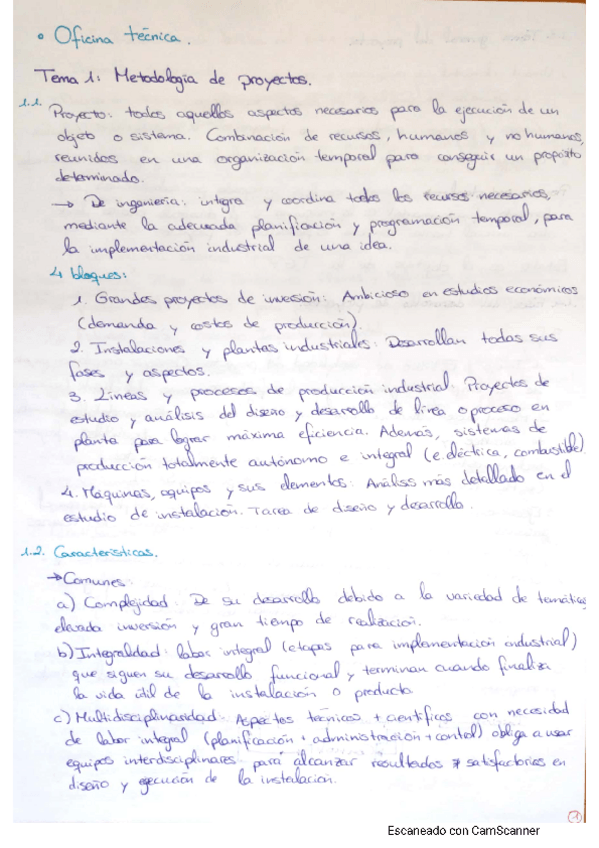 • Oficina técnica.
Tema 1: Metodología de proyectos.
1.1. Proyecto: todos aquellos aspectos necesarios para la ejecución de un
objeto o sistema. Combinación de recursos, humanos y no humanos,
reunidos en una organización temporal para conseguir un propósito
determinado.
→ De ingeniería: integra y coordina todos los recursos necesarios,
mediante la adecuada planificación y programación temporal, para
la implementación industrial de una idea.
4 bloques:
1. Grandes proyectos de inversión: Ambicioso en estudios económicos
(demanda y costos de producción)
2. Instalaciones y plantas industriales: Desarrollan todas sus
fases y aspectos.
3. Líneas y procesos de producción industrial: Proyectos de
estudio y análisis del diseño y desarrollo de línea o proceso en
planta para lograr máxima eficiencia. Además, sistemas de
producción totalmente autónomo e integral (e. eléctrica, combustible)
4. Máquinas, equipos y sus elementos: Análisis más detallado en el
estudio de instalación. Tarea de diseño y desarrollo.
1.2. Características.
→ Comunes:
a) Complejidad: De su desarrollo debido a la variedad de temáticas
elevada inversión y gran tiempo de realización.
b) Integralidad: labor integral (etapas para implementación industrial)
que siguen su desarrollo funcional y terminan cuando finaliza
la vida útil de la instalación o producto.
c) Multidisciplinaridad: Aspectos técnicos + científicos con necesidad
de labor integral (planificación + administración + control) obliga a usar
equipos interdisciplinares para alcanzar resultados satisfactorios en
diseño y ejecución de la instalación.
1
Escaneado con CamScanner